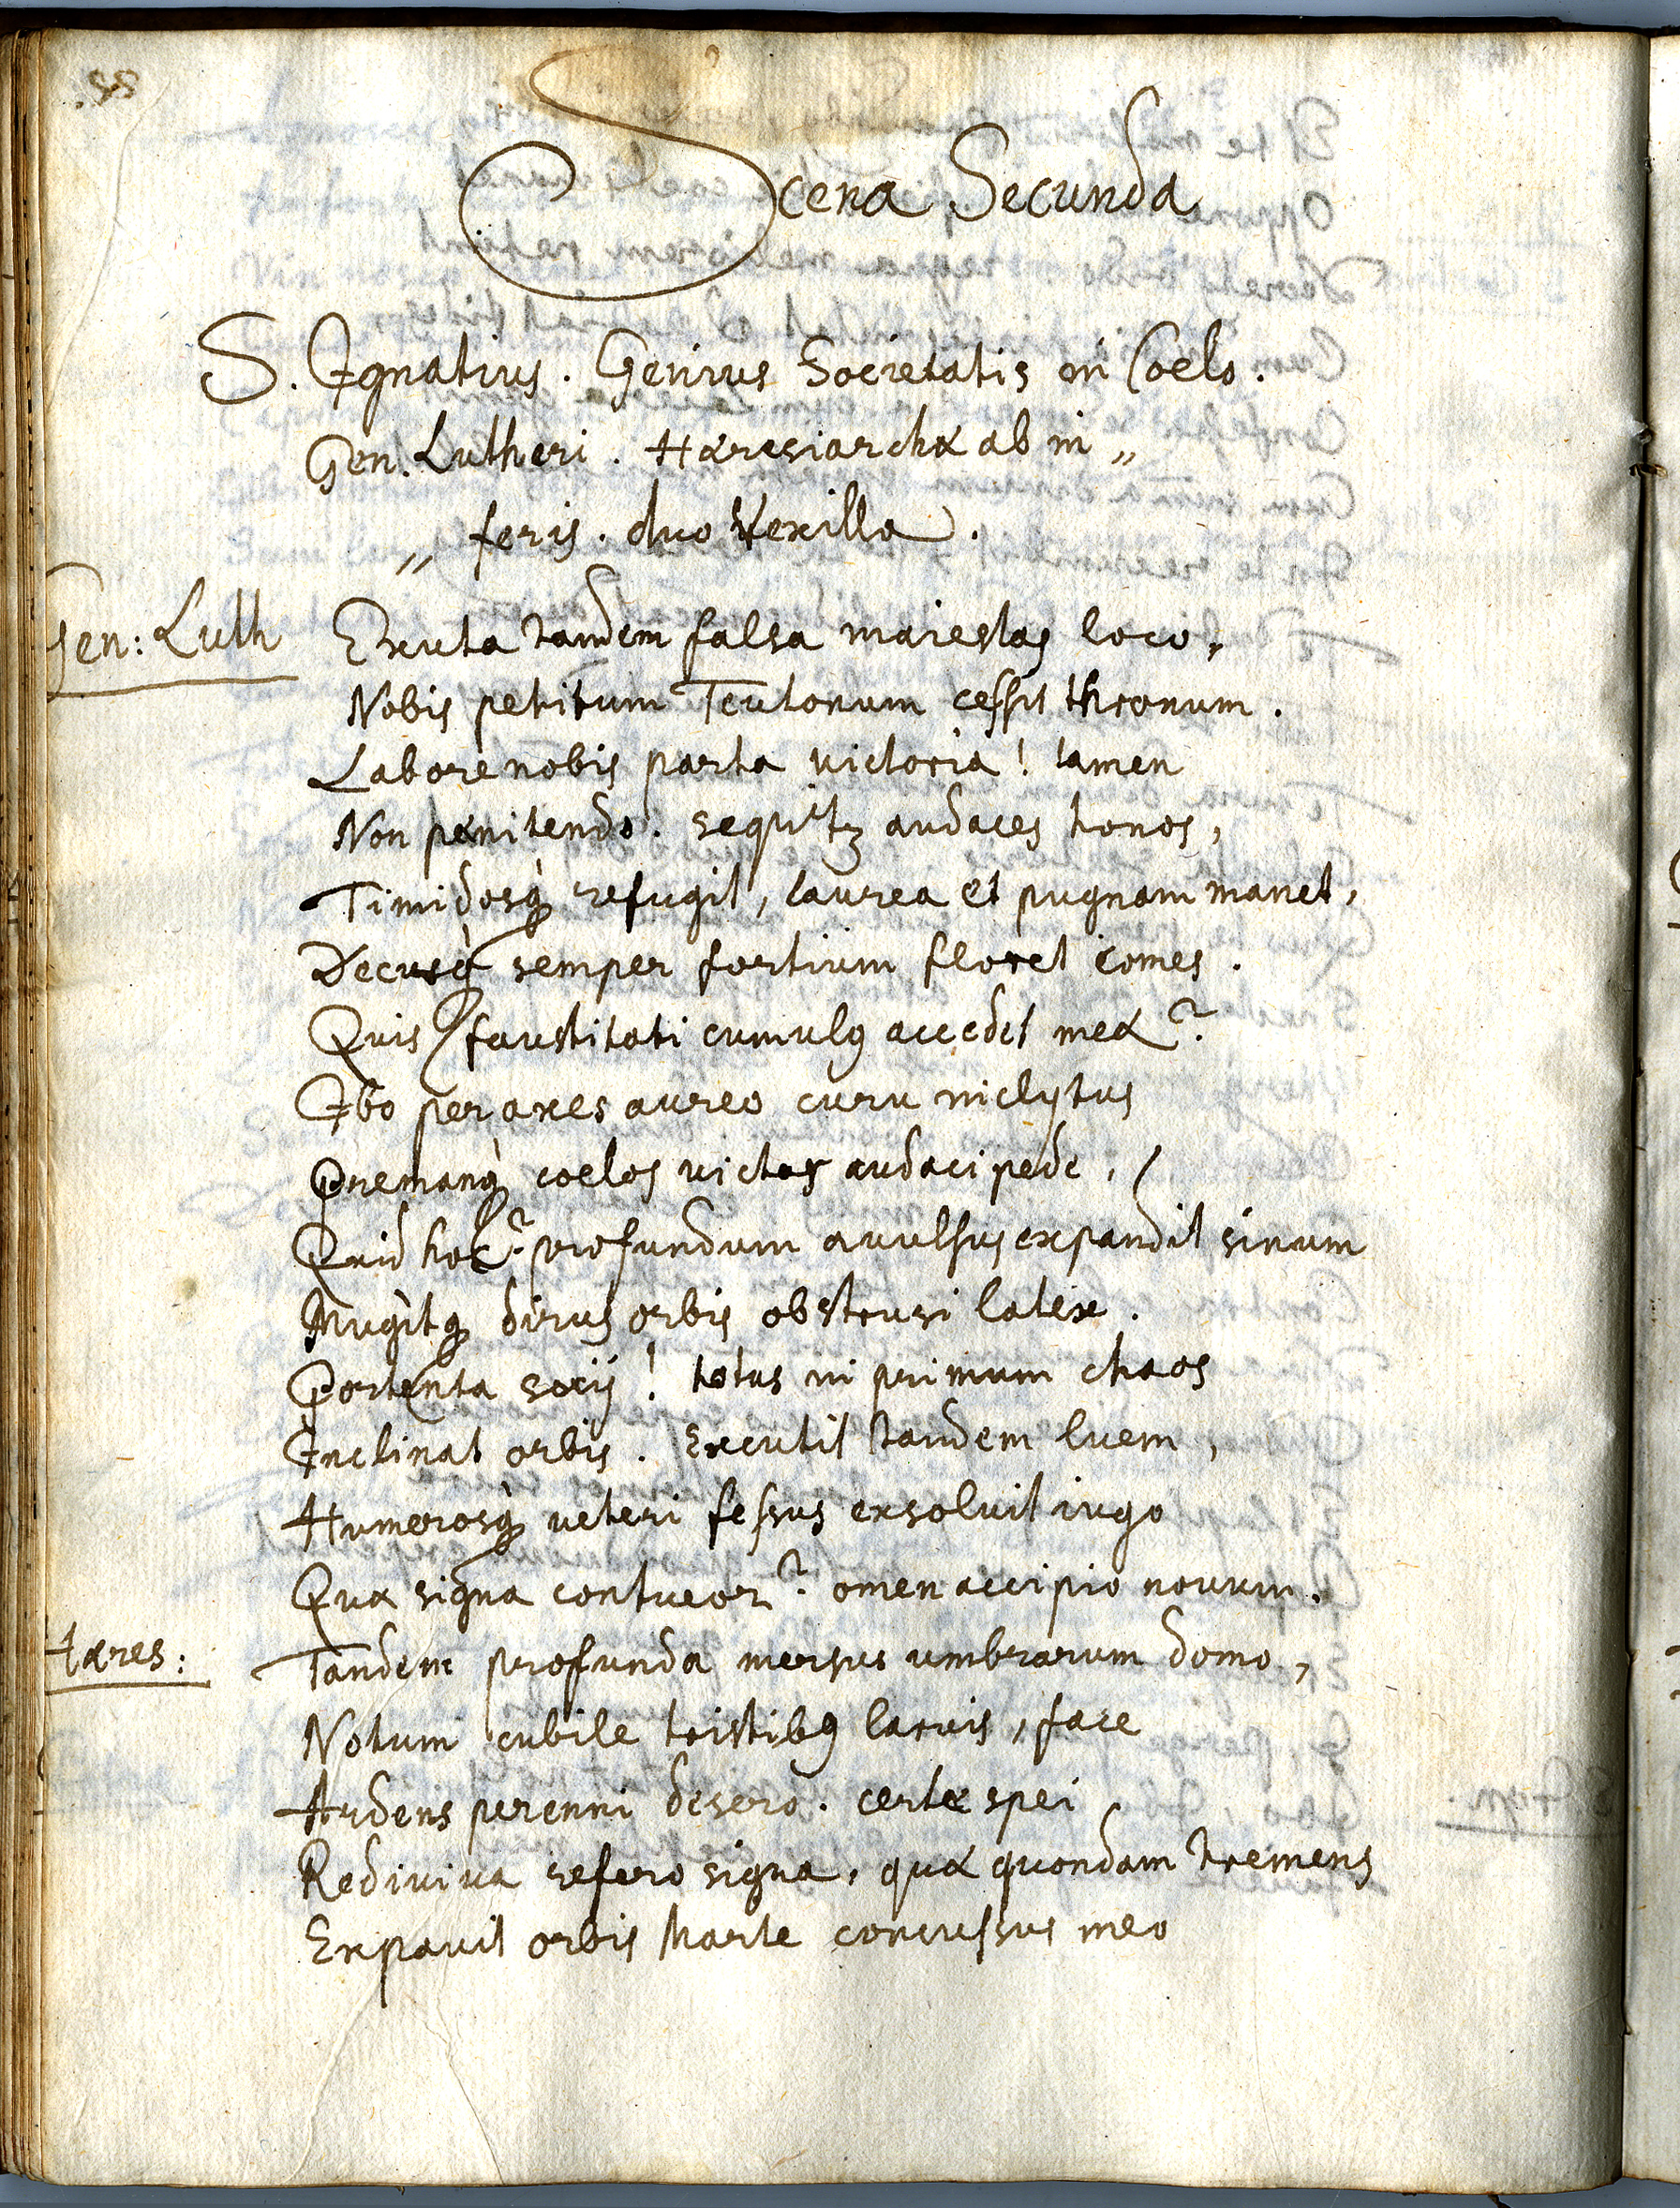 Scena Secunda
S. Ignatius. Genius Societatis in Coelo.
Gen. Lutheri. Hæresiarchæ ab in„
„feris. duo Vexilla.
Gen: Luth Exuta tandem falsa maiestas loco,
Nobis petitum Teutonum cessit thronum.
Labore nobis parta victoria! tamen
Non pænitendo. sequitꝫ audaces honos,
Timidosq́ꝫ refugit, laurea et pugnam manet,
Decusq́ꝫ semper fortium floret comes.
Quis faustitati cumulꝰ accedet meæ?
Ibo per axes aureo curu inclytus
Premamq́ꝫ coelos victor audaci pede.
Quid hoc? profundum avulsus expandit sinum
Mugitqꝫ dirus orbis obstrusi latex.
Portenta socij! totus in primum chaos
Inclinat orbis. Excutit tandem luem,
Humerosq́ꝫ veteri fessus exsoluit iugo
Quæ signa contueor? omen accipio nouum.
Hæres: Tandem profunda mersus umbrarum domo,
Notum cubile tristibꝰ laruis, face
Ardens perenni desero. certæ spei
Rediviva refero signa, quæ quondam tremens
Expauit orbis Marte concussus meo